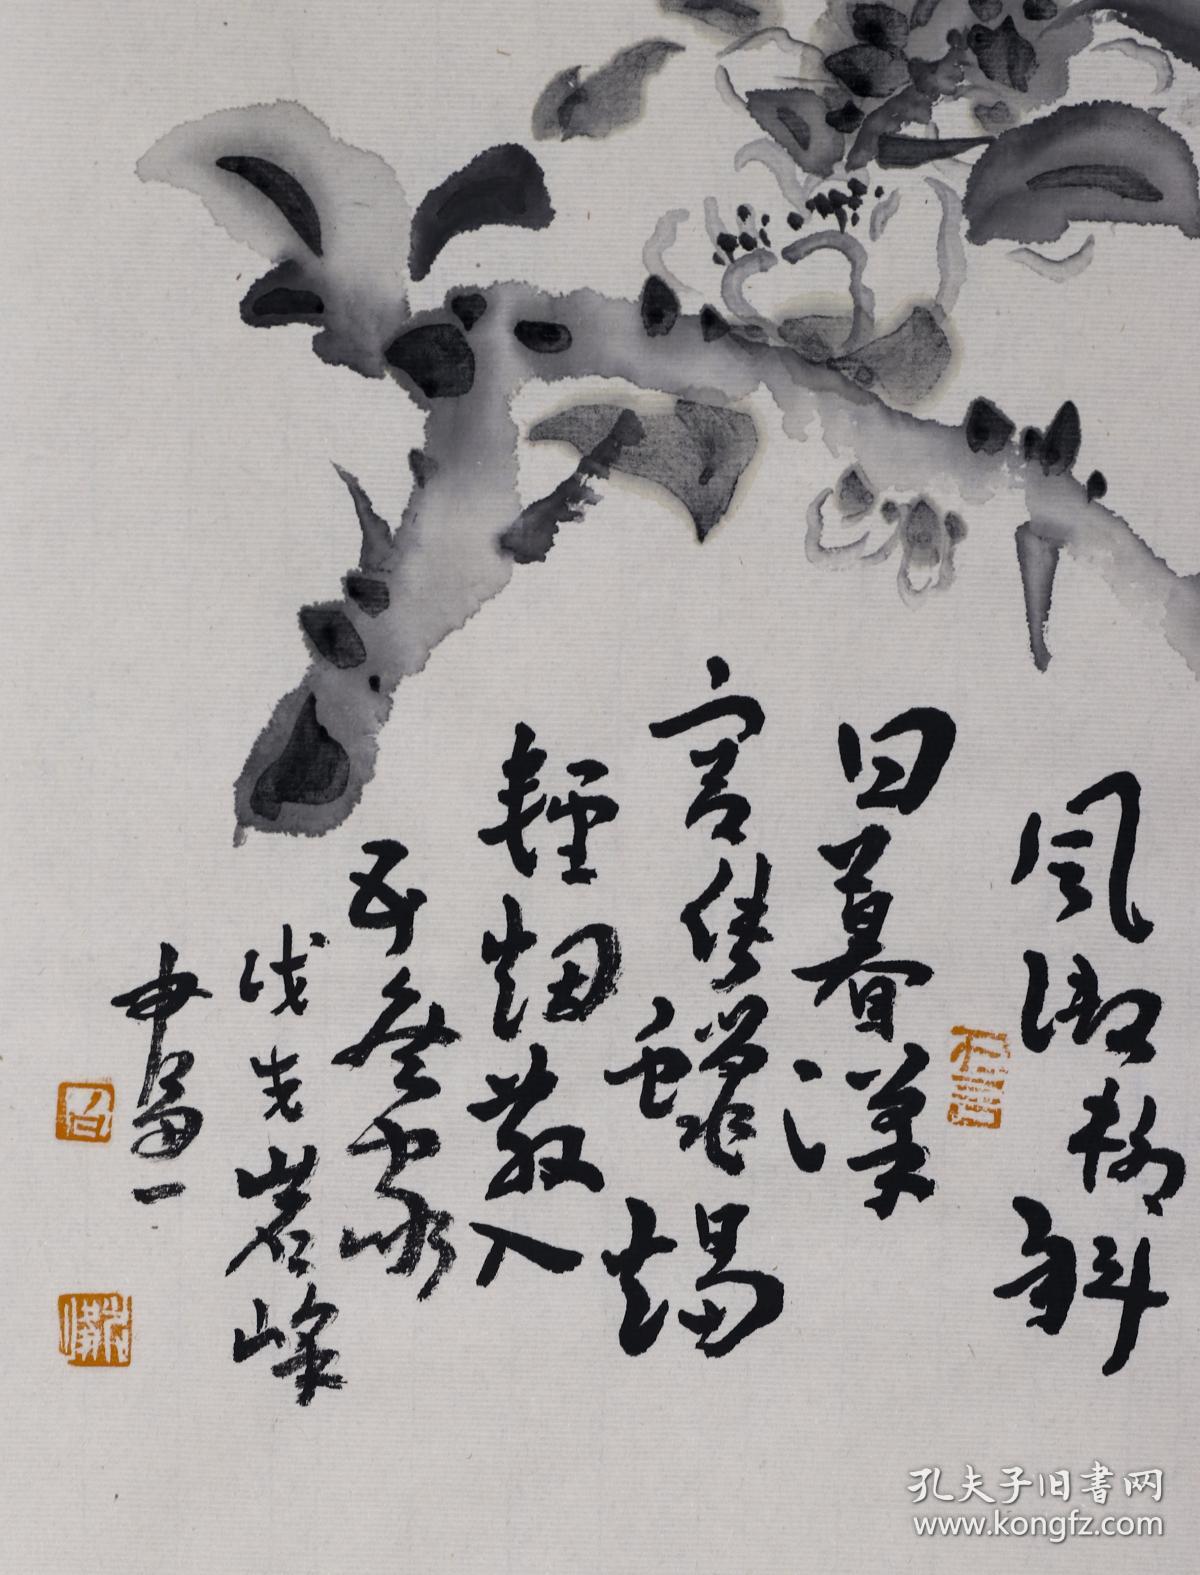 風御柳斜
日暮漢
宮傳蠟燭
輕烟散入
五侯家
岩峰
孔夫子旧书网
www.kongfz.com